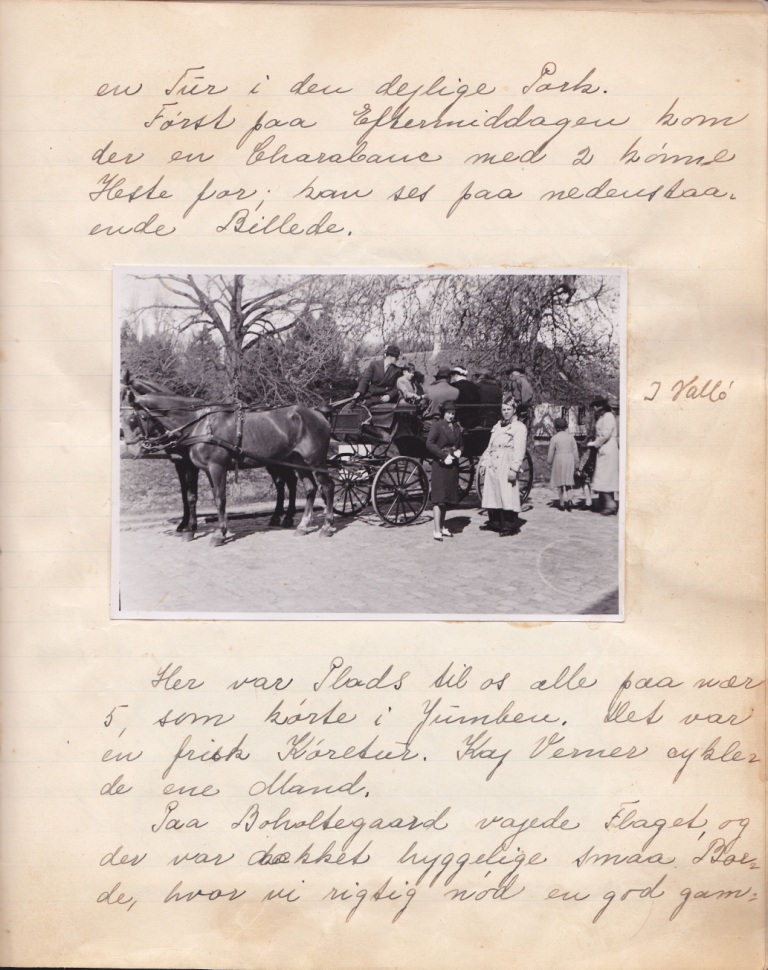 en Tur i den dejlige Park.
Först paa Eftermiddagen kom
der en Charabanc med 2 könne
Heste for; kan ses paa nedenstaa-
ende Billede.
I Vallö
Her var Plads til os alle paa nær
5, som körte i Jumben. Det var
en frisk Köretur. Kaj Verner cykle-
de ene Mand.
Paa Boholtegaard vajede Flaget, og
der var dækket hyggelige smaa Bor-
de, hvor vi rigtig nöd en god gam-